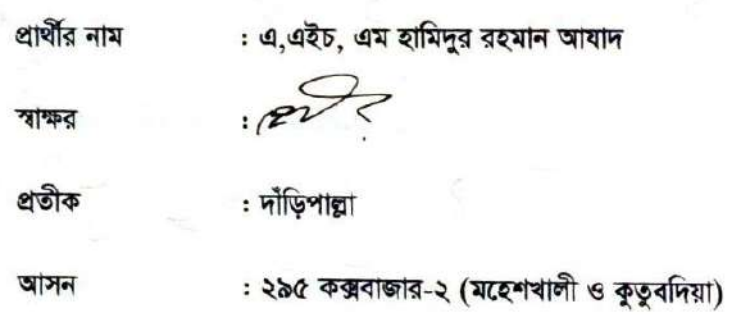 প্রার্থীর নাম : এ,এইচ, এম হামিদুর রহমান আযাদ
স্বাক্ষর :
প্রতীক : দাঁড়িপাল্লা
আসন : ২৯৫ কক্সবাজার-২ (মহেশখালী ও কুতুবদিয়া)